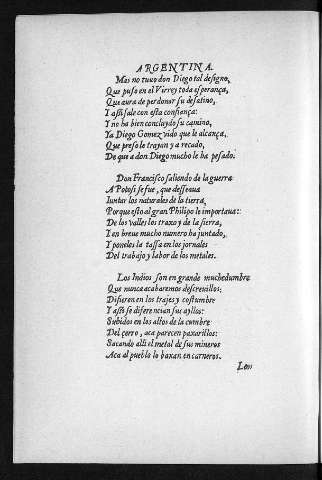 ARGENTINA.
Mas no tuuo don Diego tal designo,
Que puso en el Virrey toda esperança,
Que aura de perdonar su desatino,
Y assi sale con esta confiança:
Y no ha bien concluydo su camino,
Ya Diego Gomez vido que le alcança,
Que preso le trayan y a recado,
De que a don Diego mucho le ha pesado.
Don Francisco saliendo de la guerra
A Potosi se fue, que desseaua
Iuntar los naturales de la tierra,
Porque esto al gran Philipo le importaua:
De los valles los traxo y de la sierra,
Y en breue mucho numero ha juntado,
Y poneles la tassa en los jornales
Del trabajo y labor de los metales.
Los Indios son en grande muchedumbre
Que nunca acabaremos descreuillos:
Difieren en los trajes y costumbre
Y assi se diferencian sus ayllos:
Subidos en los altos de la cumbre
Del çerro, aca parecen paxarillos:
Sacando alli el metal de sus mineros
Aca al pueblo lo baxan en carneros.
Lon